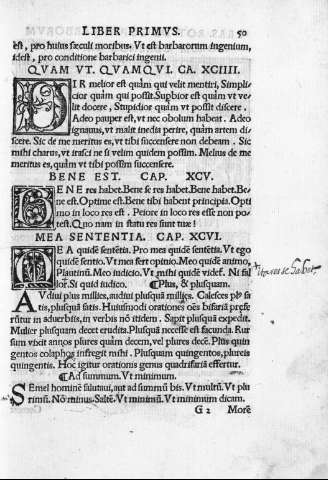 LIBER PRIMVS. 50
est, pro huius sæculi moribus. Vt est barbarorum ingenium,
idest, pro conditione barbarici ingenii.
QVAM VT. QVAMQVI. CA. XCIIII.
VIR melior est quàm qui velit mentiri, Simpli-
cior quàm qui possit. Supbior est quàm vt ve-
lit docere, Stupidior quàm vt possit discere.
Adeo pauper est, vt nec obolum habeat. Adeo
ignauus, vt malit inedia perire, quàm artem di-
scere. Sic de me meritus es, vt tibi succensere non debeam. Sic
mihi charus, vt irasci ne si velim quidem possim. Melius de me
meritus es, quàm vt tibi possim succensere.
BENE EST. CAP. XCV.
BENE res habet. Bene se res habet. Bene habet. Be-
ne est. Optime est. Bene tibi habent principia. Opti-
mo in loco res est. Peiore in loco res esse non po-
test. Quo nam in statu res sunt tuæ?
MEA SENTENTIA. CAP. XCVI.
MEA quidē sentētia. Pro mea quidē sentētia. Vt ego
quidē sentio. Vt mea fert opinio. Meo quidē animo,
Plautinū. Meo iudicio. Vt mihi quidē videt. Ni fal
lor. Si quid iudico. ¶ Plus, & plusquam.
AVdiui plus millies, audiui plusquā millies. Calesces plꝰ sa-
tis, plusquā satis. Huiusmodi orationes oēs bifariā præse
rūtur in aduerbiis, in verbis nō itidem. Sapit plusquā expedit.
Mulier plusquam decet erudita. Plusquā necesse est facunda. Rur
sum vixit annos plures quàm decem, vel plures decē. Plus quin
gentos colaphos infregit mihi. Plusquam quingentos, plureis
quingentis. Hoc igitur orationis genus quadrifariā effertur.
¶ Ad summum. Vt minimum.
SEmel hominē salutaui, aut ad summū bis. Vt multū. Vt plu
rimū. Nō minus. Saltē. Vt minimū. Vt minimum dicam.
G 2 Morē